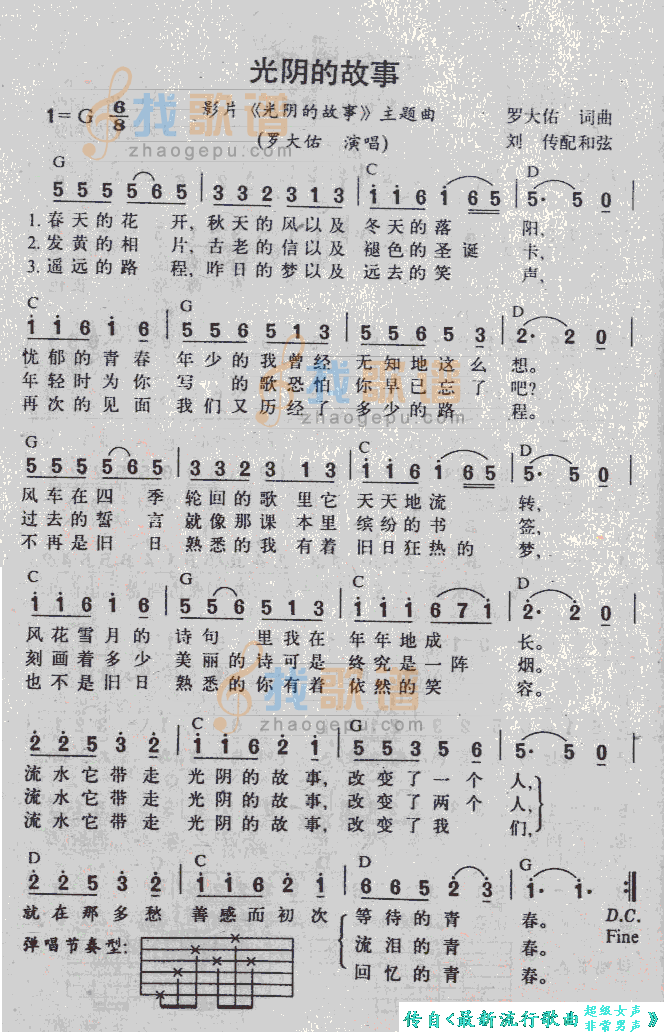 光阴的故事
1=G 6/8 影片《光阴的故事》主题曲 罗大佑 词曲
(罗大佑 演唱) 刘 传配和弦
找歌谱
zhaogepu.com
G C D
5 5 5 5 6 5 | 3 3 2 3 1 3 | i i 6 i 6 5 | 5· 5 0
1. 春天的花 开, 秋天的风以及 冬天的落 阳,
2. 发黄的相 片, 古老的信以及 褪色的圣诞 卡,
3. 遥远的路 程, 昨日的梦以及 远去的笑 声,
C G D
i i 6 i 6 | 5 5 6 5 1 3 | 5 5 5 6 5 3 | 2· 2 0
忧郁的青春 年少的我曾经 无知地这么 想。
年轻时为你 写 的歌恐怕 你早已忘了 吧?
再次的见面 我们又历经了 多少的路 程。
找歌谱
zhaogepu.com
G C D
5 5 5 5 6 5 | 3 3 2 3 1 3 | i i 6 i 6 5 | 5· 5 0
风车在四 季 轮回的歌 里它 天天地流 转,
过去的誓 言 就像那课 本里 缤纷的书 签,
不再是旧 日 熟悉的我 有着 旧日狂热的 梦,
C G C D
i i 6 i 6 | 5 5 6 5 1 3 | i i i 6 7 i | 2· 2 0
风花雪月的 诗句 里我在 年年地成 长。
刻画着多少 美丽的诗可是 终究是一阵 烟。
也不是旧日 熟悉的你有着 依然的笑 容。
找歌谱
zhaogepu.com
C G
2 2 5 3 2 | i i 6 2 i | 5 5 3 5 6 | 5· 5 0
流水它带走 光阴的故事, 改变了一个 人,
流水它带走 光阴的故事, 改变了两个 人,
流水它带走 光阴的故事, 改变了我 们,
D C D G
2 2 5 3 2 | i i 6 2 i | 6 6 5 2 2 | i· i· :||
就在那多愁 善感而初次 等待的青 春。 D.C.
弹唱节奏型: 流泪的青 春。 Fine
回忆的青 春。
传自《最新流行歌曲 超级女声 非常男声》